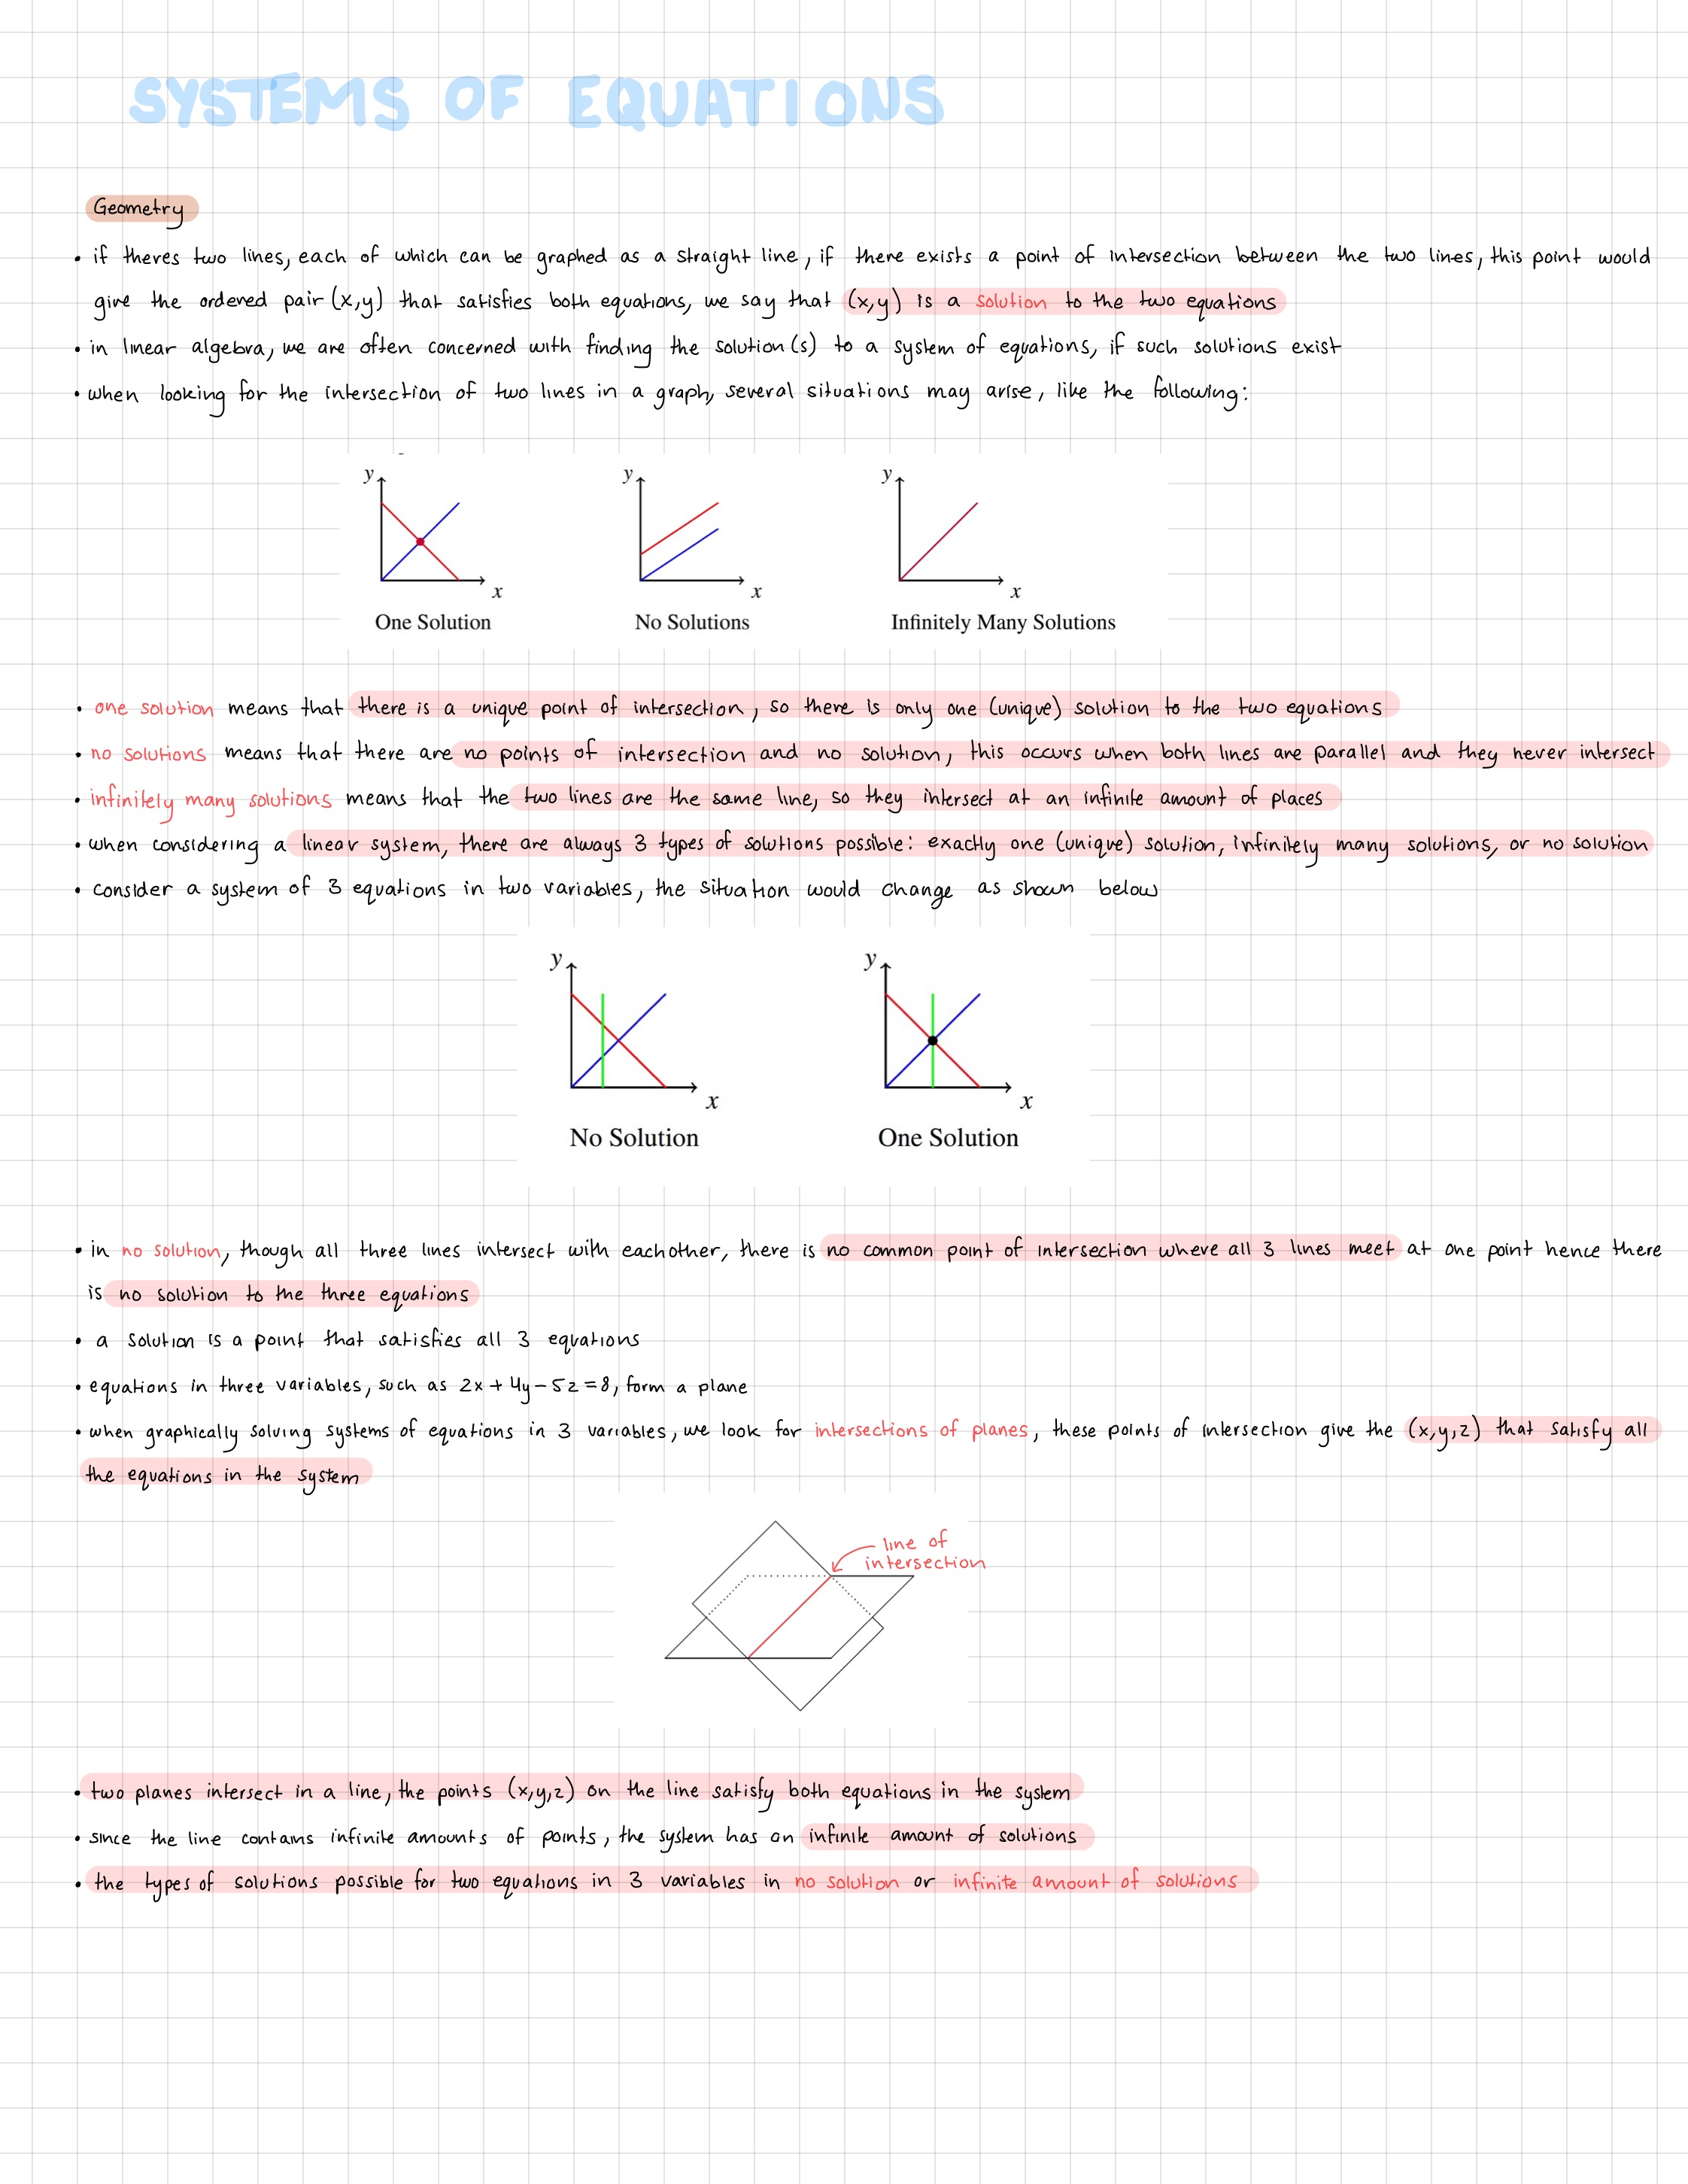 SYSTEMS OF EQUATIONS
Geometry
• if theres two lines, each of which can be graphed as a straight line, if there exists a point of intersection between the two lines, this point would
give the ordered pair (x,y) that satisfies both equations, we say that (x,y) is a solution to the two equations
• in linear algebra, we are often concerned with finding the solution(s) to a system of equations, if such solutions exist
• when looking for the intersection of two lines in a graph, several situations may arise, like the following:
y y y
x x x
One Solution No Solutions Infinitely Many Solutions
• one solution means that there is a unique point of intersection, so there is only one (unique) solution to the two equations
• no solutions means that there are no points of intersection and no solution, this occurs when both lines are parallel and they never intersect
• infinitely many solutions means that the two lines are the same line, so they intersect at an infinite amount of places
• when considering a linear system, there are always 3 types of solutions possible: exactly one (unique) solution, infinitely many solutions, or no solution
• consider a system of 3 equations in two variables, the situation would change as shown below
y y
x x
No Solution One Solution
• in no solution, though all three lines intersect with eachother, there is no common point of intersection where all 3 lines meet at one point hence there
is no solution to the three equations
• a solution is a point that satisfies all 3 equations
• equations in three variables, such as 2x + 4y - 5z = 8, form a plane
• when graphically solving systems of equations in 3 variables, we look for intersections of planes, these points of intersection give the (x,y,z) that satisfy all
the equations in the system
line of
intersection
• two planes intersect in a line, the points (x,y,z) on the line satisfy both equations in the system
• since the line contains infinite amounts of points, the system has an infinite amount of solutions
• the types of solutions possible for two equations in 3 variables in no solution or infinite amount of solutions